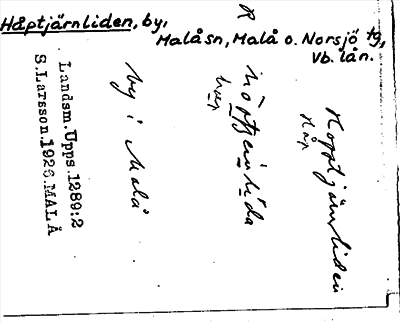 Håptjärnliden, by,
Malåsn, Malå o. Norsjö tg,
Vb. län.
R
Hopptjärnliden
Håp
by i Malå
Landsm.Upps.1289:2
S.Larsson.1926.MALÅ